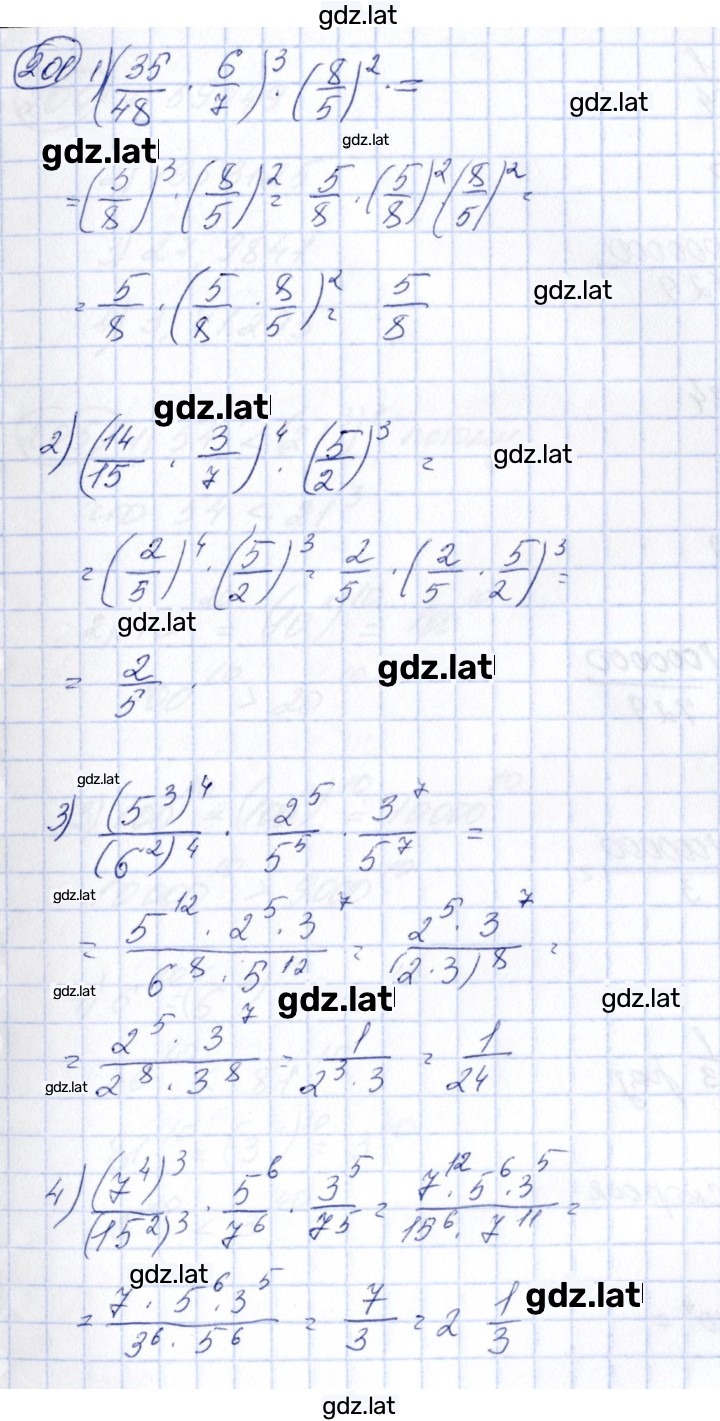 gdz.lat
200 1) (35/48 · 6/7)³ · (8/5)² · =
gdz.lat
gdz.lat gdz.lat
= (5/8)³ · (8/5)² = 5/8 · (5/8)² · (8/5)² =
= 5/8 · (5/8 · 8/5)² = 5/8
gdz.lat
gdz.lat
2) (14/15 · 3/7)⁴ · (5/2)³ =
gdz.lat
= (2/5)⁴ · (5/2)³ = 2/5 · (2/5 · 5/2)³ =
gdz.lat
= 2/5 .
gdz.lat
gdz.lat
3) (5³)⁴/(6²)⁴ · 2⁵/5⁵ · 3⁷/5⁷ =
gdz.lat
= 5¹² · 2⁵ · 3⁷/6⁸ · 5¹² = 2⁵ · 3⁷/(2 · 3)⁸ =
gdz.lat gdz.lat gdz.lat
= 2⁵ · 3⁷/2⁸ · 3⁸ = 1/2³ · 3 = 1/24
gdz.lat
4) (7⁴)³/(15²)³ · 5⁶/7⁶ · 3⁵/7⁵ = 7¹² · 5⁶ · 3⁵/15⁶ · 7¹¹ =
gdz.lat gdz.lat
= 7 · 5⁶ · 3⁵/3⁶ · 5⁶ = 7/3 = 2 1/3
gdz.lat